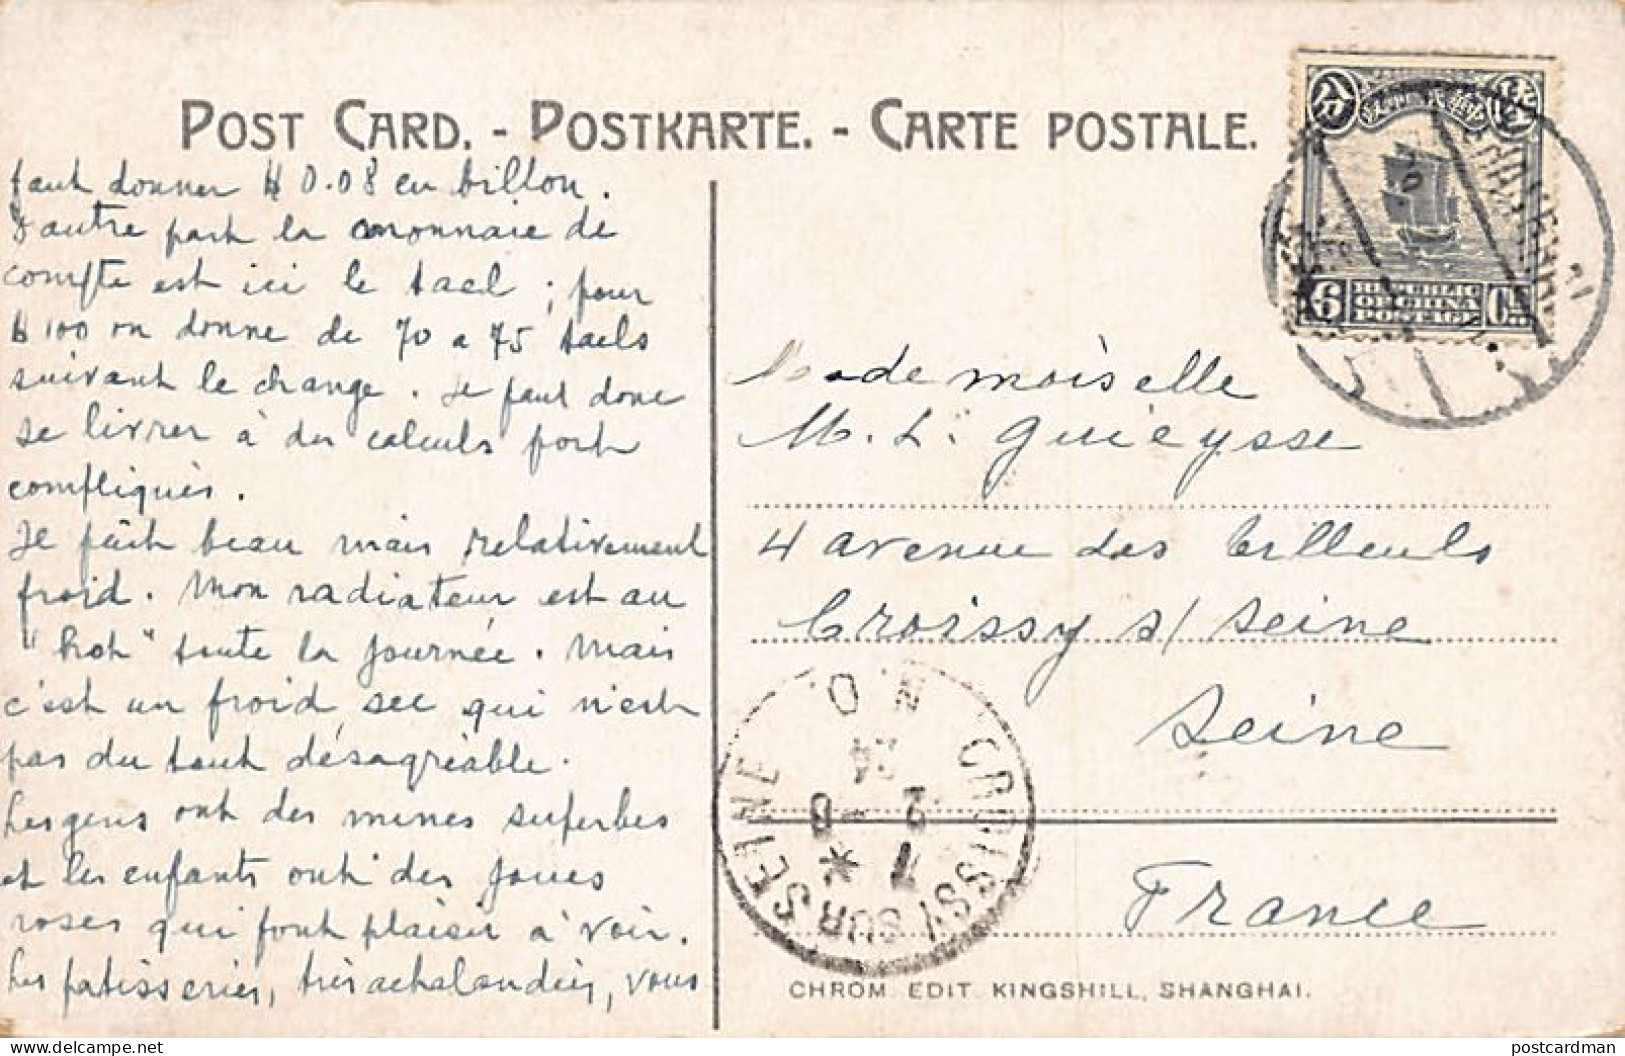 POST CARD. - POSTKARTE. - CARTE POSTALE.
faut donner $ 0.08 en billon.
D'autre part la monnaie de
compte est ici le tael ; pour
$ 100 on donne de 70 a 75 taels
suivant le change. Je faut donc
se livrer à des calculs fort
compliqués.
Je fait beau mais relativement
froid. Mon radiateur est au
"hot" toute la journée. Mais
c'est un froid sec qui n'est
pas du tout désagréable.
Les gens ont des mines superbes
et les enfants ont des joues
roses qui font plaisir à voir.
Les patisseries, très achalandées, vous
REPUBLIC
OF CHINA
POSTAGE
6 Cts
Mademoiselle
M. L. Guieysse
4 avenue des Tilleuls
Croissy s/ Seine
Seine
France
CROISSY SUR SEINE
CHROM. EDIT. KINGSHILL, SHANGHAI.
postcardman